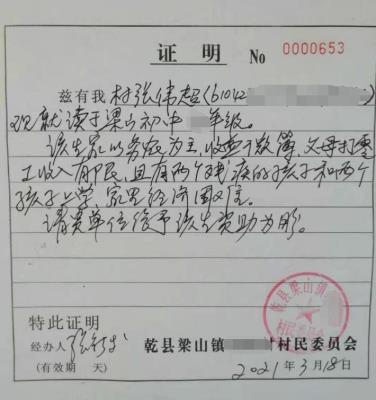 证明 No 0000653
兹有我村张伟超(61042
现就读于梁山初中 年级。
该生家以务农为主,收益微薄,父母打零
工收入有限,且有两个残疾的孩子和两个
孩子上学,家里经济困难。
请贵单位给予该生资助为盼。
特此证明
经办人
(有效期 天)
乾县梁山镇 村民委员会
2021年3月18日
乾县梁山镇
村民委员会